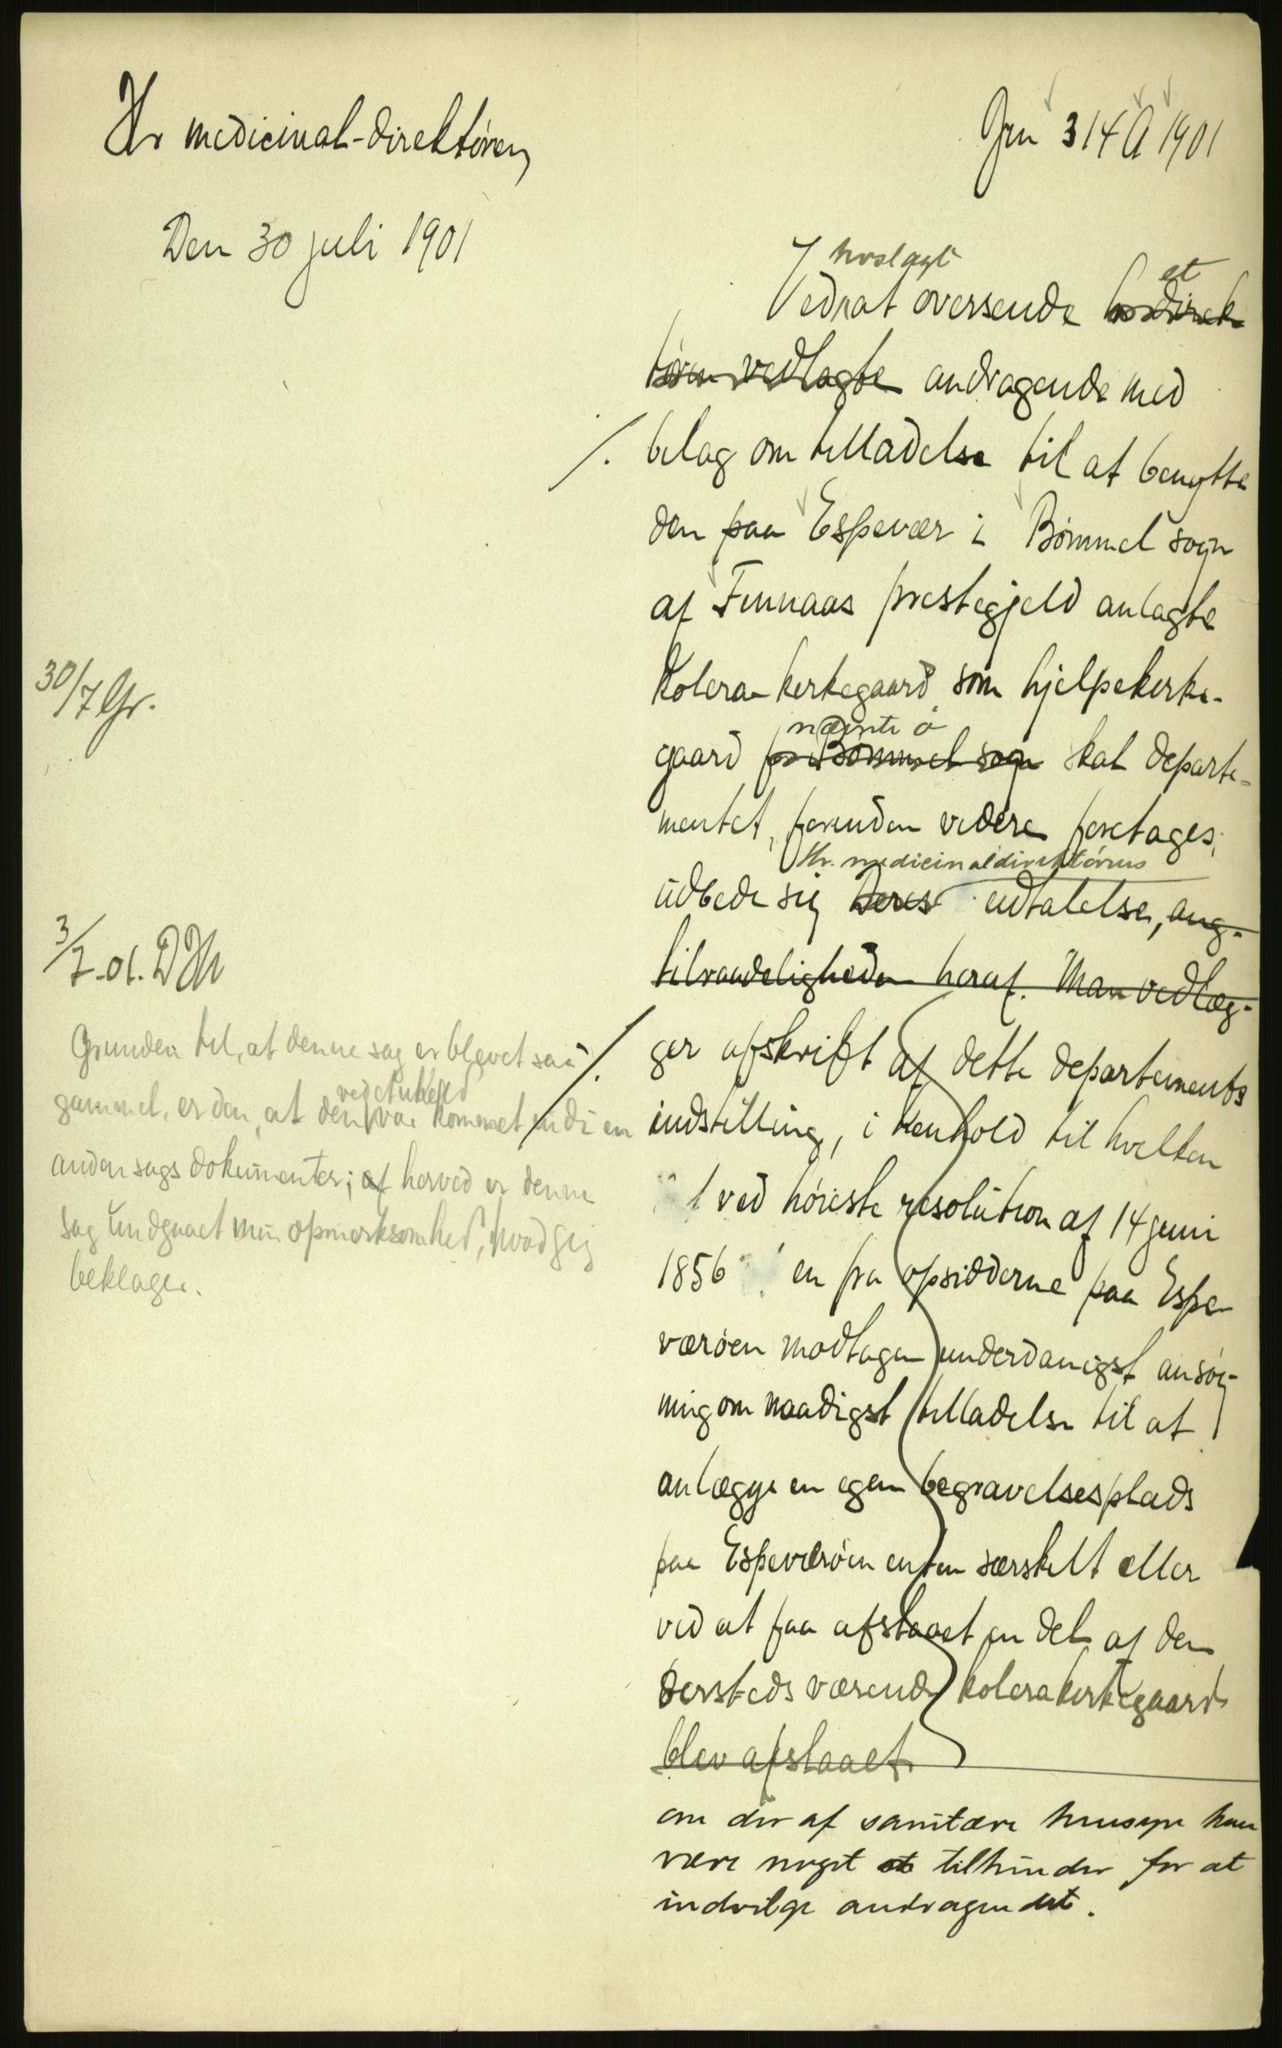 Hr medicinal-direktøren
Jrn 314 A 1901
Den 30 juli 1901
hoslagt
et
Vedrat oversende hr direk-
tøren vedlagte andragende med
/. belag om tilladelse til at benytte
den paa Espevær i Bømmel sogn
af Finnaas prestegjeld anlagte
Kolera-kirkegaard som hjelpekirke-
nævnte ø
gaard for Bømmel sogn skal departe-
mentet, forinden videre foretages,
Hr. medicinaldirektørens
udbede sig Deres udtalelse, ang.
tilraadeligheden heraf. Man vedlæg-
/. ger afskrift af dette departements
indstilling, i henhold til hvilken
ved høieste resolution af 14 juni
1856 en fra opsidderne paa Espe-
værøen modtagen underdanigst ansøg-
ning om naadigst tilladelse til at
anlægge en egen begravelsesplads
paa Espeværøen enten særskilt eller
ved at faa afstaaet en del af den
dersteds værende kolerakirkegaard
blev afslaaet.
om der af sanitære hensyn kan
være noget at tilhinder for at
indvilge andragendet.
30/7 Gr.
3/7-01. DH
Grunden til, at denne sag er blevet saa
vedetuheld
gammel, er den, at den var kommet indi en
anden sags dokumenter; af herved er denne
sag undgaaet min opmerksomhed, hvad jeg
beklager.